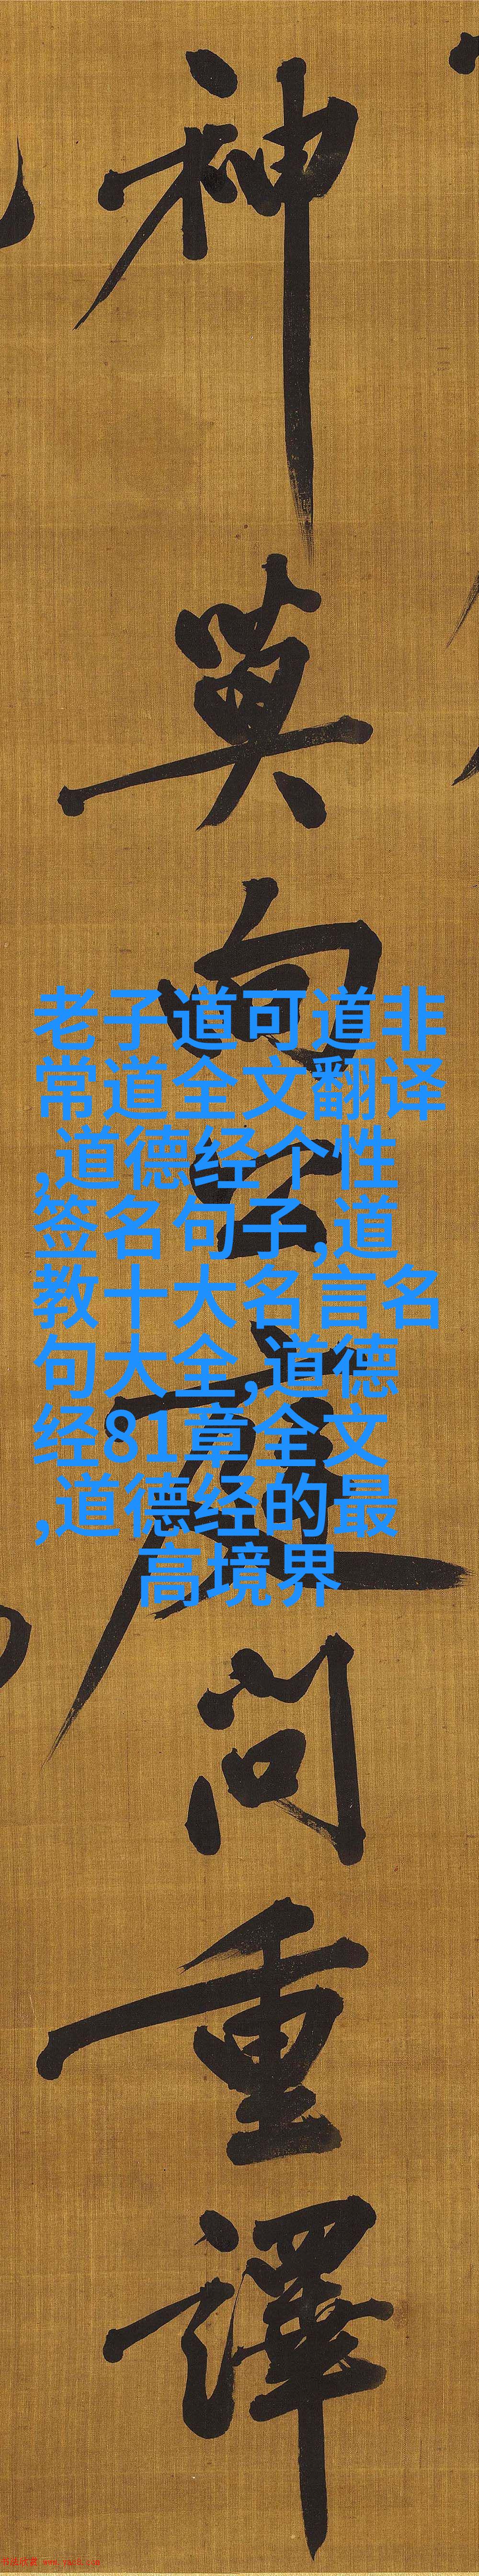 神莫向問重譯
老子道可道非
常道全文翻译
,道德经个性
签名句子,道
教十大名言名
句大全,道德
经81章全文
,道德经的最
高境界
www.yac8.com